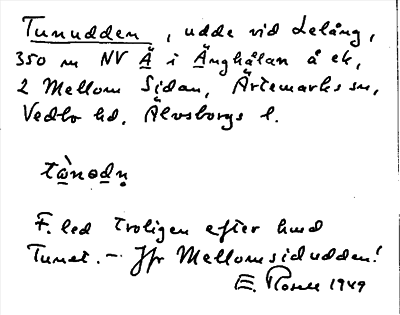 Tunudden, udde vid Lelång,
350 m NV Ä i Änghålan å ek,
2 Mellom Sidan, Ärtemarks sn,
Vedbo hd, Älvsborgs l.
F. led troligen efter hmd
Tunet. – Jfr Mellomsidudden!
E. 1949